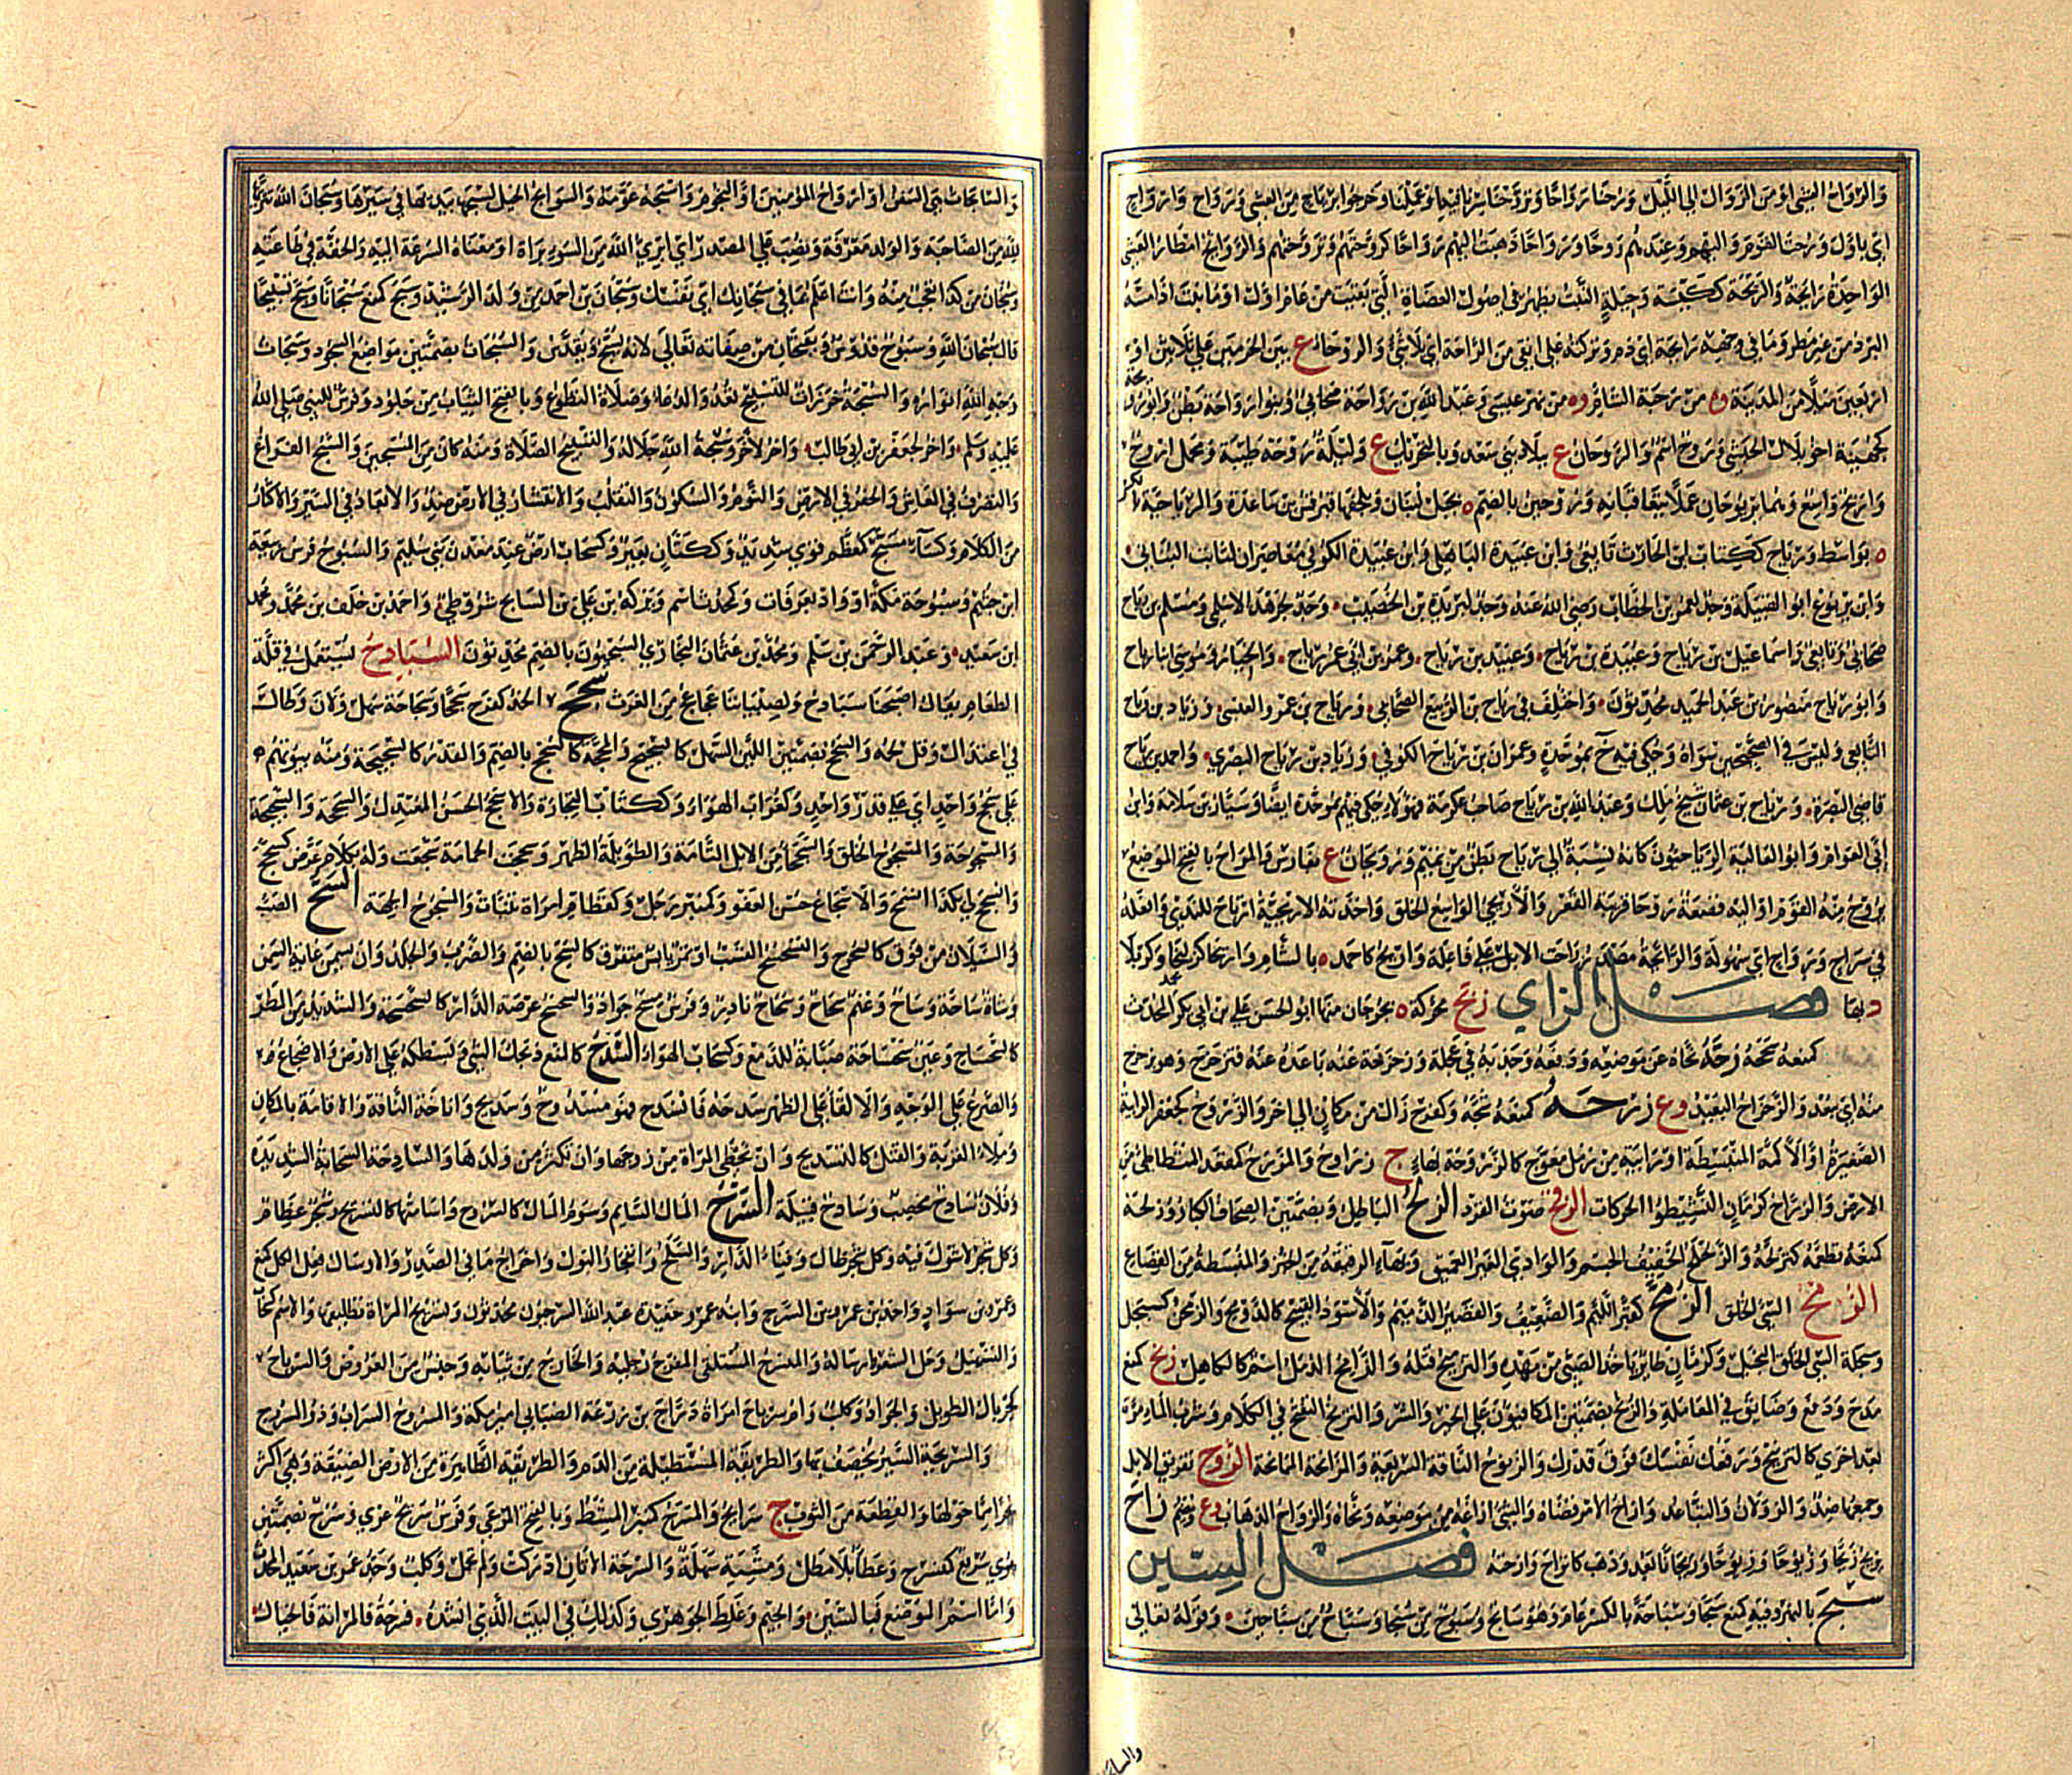 وَالرَّوَاحُ العَشِيُّ اَوْ مِنَ الزَّوَالِ اِلَى اللَّيْلِ وَرُحْنَا رَوَاحًا وَتَرَوَّحْنَا سِرْنَا فِيهِ اَوْ عَمِلْنَا وَخَرَجُوا بِرِيَاحٍ مِنَ العَشِيِّ وَرَوَاحٍ وَاَرْوَاحٍ
اَيْ بِاَوَّلٍ وَرُحْتُ القَوْمَ وَاِلَيْهِمْ وَعِنْدَهُمْ رَوْحًا وَرَوَاحًا ذَهَبْتُ اِلَيْهِمْ رَوَاحًا كَرَوَّحْتُهُمْ وَتَرَوَّحْتُهُمْ وَالرَّوَائِحُ اَمْطَارُ العَشِيِّ
الوَاحِدَةُ رَائِحَةٌ وَالرَّيِّحَةُ كَكَيِّسَةٍ وَحِيلَةٍ النَّبْتُ يَظْهَرُ فِي اُصُولِ العِضَاهِ الَّتِي بَقِيَتْ مِنْ عَامِ اَوَّلَ اَوْ مَا نَبَتَ اِذَا مَسَّهُ
البَرْدُ مِنْ غَيْرِ مَطَرٍ وَمَا فِي وَجْهِهِ رَائِحَةٌ اَيْ دَمٌ وَتَرَكْتُهُ عَلَى اَنْقَى مِنَ الرَّاحَةِ اَيْ بِلَا شَيْءٍ وَالرَّوْحَاءُ ع بَيْنَ الحَرَمَيْنِ عَلَى ثَلَاثِينَ اَوْ
اَرْبَعِينَ مِيلًا مِنَ المَدِينَةِ وة مِنْ رَحْبَةِ الشَّامِ وة مِنْ نَهْرِ عِيسَى وَعَبْدُ اللّٰهِ بْنُ رَوَاحَةَ صَحَابِيٌّ وَبَنُو رَوَاحَةَ بَطْنٌ وَاَبُو رُوَيْحَةَ
كَجُهَيْنَةَ اَخُو بِلَالٍ الحَبَشِيِّ وَرَوْحٌ اسْمٌ وَالرَّوْحَانُ ع بِبِلَادِ بَنِي سَعْدٍ وَبِالتَّحْرِيكِ ع وَلَيْلَةٌ رَوْحَةٌ طَيِّبَةٌ وَمَحْمِلٌ اَرْوَحُ
وَاَرْيَحُ وَاسِعٌ وَهُمَا يَرْتَوِحَانِ عَمَلًا يَتَعَاقَبَانِهِ وَرُوحِينُ بِالضَّمِّ ة بِجَبَلِ لُبْنَانَ وَبِلِحْفِهَا قَبْرُ قُسِّ بْنِ سَاعِدَةَ وَالرِّيَاحِيَّةُ بِالكَسْرِ
ة بِوَاسِطَ وَرِيَاحٌ كَكِتَابٍ ابْنُ الحَارِثِ تَابِعِيٌّ وَابْنُ عُبَيْدَةَ البَاهِلِيُّ وَابْنُ عُبَيْدَةَ الكُوفِيُّ مُعَاصِرَانِ لِثَابِتٍ البُنَانِيِّ
وَابْنُ يَرْبُوعٍ اَبُو القَبِيلَةِ وَجَدٌّ لِعُمَرَ بْنِ الخَطَّابِ رَضِيَ اللّٰهُ عَنْهُ وَجَدٌّ لِبُرَيْدَةَ بْنِ الحُصَيْبِ وَجَدٌّ لِجَرْهَدٍ الاَسْلَمِيِّ وَمُسْلِمُ بْنُ رِيَاحٍ
صَحَابِيٌّ وَتَابِعِيٌّ وَاِسْمَاعِيلُ بْنُ رِيَاحٍ وَعُبَيْدَةُ بْنُ رِيَاحٍ وَعُبَيْدُ بْنُ رِيَاحٍ وَعُمَرُ بْنُ اَبِي عُمَرَ رِيَاحٍ وَالخِيَارُ وَمُوسَى ابْنَا رِيَاحٍ
وَاَبُو رِيَاحٍ مَنْصُورُ بْنُ عَبْدِ الحَمِيدِ مُحَدِّثُونَ وَاخْتُلِفَ فِي رِيَاحِ بْنِ الرَّبِيعِ الصَّحَابِيِّ وَرِيَاحِ بْنِ عَمْرٍو العَبْسِيِّ وَزِيَادِ بْنِ رِيَاحٍ
التَّابِعِيِّ وَلَيْسَ فِي الصَّحِيحَيْنِ سِوَاهُ وَحُكِيَ فِيهِ خ بِمُوَحَّدَةٍ وَعِمْرَانَ بْنِ رِيَاحٍ الكُوفِيِّ وَزِيَادِ بْنِ رِيَاحٍ البَصْرِيِّ وَاَحْمَدَ بْنِ رِيَاحٍ
قَاضِي البَصْرَةِ وَرِيَاحِ بْنِ عُثْمَانَ شَيْخِ مَالِكٍ وَعَبْدِ اللّٰهِ بْنِ رِيَاحٍ صَاحِبِ عِكْرِمَةَ فَهٰؤُلَاءِ حُكِيَ فِيهِمْ بِمُوَحَّدَةٍ اَيْضًا وَسَيَّارُ بْنُ سَلَامَةَ وَابْنُ
اَبِي العَوَّامِ وَاَبُو العَالِيَةِ الرِّيَاحِيُّونَ كَاَنَّهُ نِسْبَةٌ اِلَى رِيَاحٍ بَطْنٌ مِنْ تَمِيمٍ وَرُوَيْحَانُ ع بِفَارِسَ وَالمَرَاحُ بِالفَتْحِ المَوْضِعُ
يَرُوحُ مِنْهُ القَوْمُ اَوْ اِلَيْهِ وَقَصْعَةٌ رَوْحَاءُ قَرِيبَةُ القَعْرِ وَالاَرْيَحِيُّ الوَاسِعُ الخُلُقِ وَاَخَذَتْهُ الاَرْيَحِيَّةُ ارْتَاحَ لِلنَّدَى وَافْعَلْهُ
فِي سَرَاحٍ وَرَوَاحٍ اَيْ سُهُولَةٍ وَالرَّائِحَةُ مَصْدَرُ رَاحَتِ الاِبِلُ عَلَى فَاعِلَةٍ وَاَرْيَحُ كَاَحْمَدَ ة بِالشَّامِ وَاَرِيحَا كَزَلِيخَا وَكَرْبَلَا
د بِهَا فَصْلُ الزَّايِ زَبَحُ مُحَرَّكَةً ة بِجُرْجَانَ مِنْهَا اَبُو الحَسَنِ عَلِيُّ بْنُ اَبِي بَكْرٍ المُحَدِّثُ
كَمَنَعَهُ سَحَجَهُ زَحَّهُ نَحَّاهُ عَنْ مَوْضِعِهِ وَدَفَعَهُ وَجَذَبَهُ فِي عَجَلَةٍ وَزَحْزَحَهُ عَنْهُ بَاعَدَهُ عَنْهُ فَتَزَحْزَحَ وَهُوَ بِزَحْزَحٍ
مِنْهُ اَيْ بِبُعْدٍ وَالزَّحْزَاحُ البَعِيدُ وَع زَرَحَهُ كَمَنَعَهُ شَجَّهُ وَكَفَرِحَ زَالَ مِنْ مَكَانٍ اِلَى آخَرَ وَالزَّرْوَحُ كَجَعْفَرٍ الرَّابِيَةُ
الصَّغِيرَةُ اَوِ الاَكَمَةُ المُنْبَسِطَةُ اَوْ رَابِيَةٌ مِنْ رَمْلٍ مُعْوَجٌّ كَالزَّرْوَحَةِ بِهَاءٍ ج زَرَاوِحُ وَالمِزْرَحُ كَمَقْعَدٍ المُتَطَأْطِئُ مِنَ
الاَرْضِ وَالزُّرَّاحُ كَرُمَّانٍ النَّشِيطُو الحَرَكَاتِ الزَّقْحُ صَوْتُ القِرْدِ الزَّلْحُ البَاطِلُ وَبِضَمَّتَيْنِ الصِّحَافُ الكِبَارُ وَزَلَحَهُ
كَمَنَعَهُ تَطَعَّمَهُ كَتَزَلَّحَهُ وَالزَّلَحْلَحُ الخَفِيفُ الجِسْمِ وَالوَادِي الغَيْرُ العَمِيقِ وَبِهَاءٍ الرَّقِيقَةُ مِنَ الخُبْزِ وَالمُنْبَسِطَةُ مِنَ القِصَاعِ
الزَّلْنَقَحُ السَّيِّئُ الخُلُقِ الزُّمَّحُ كَقُبَّرٍ اللَّئِيمُ وَالضَّعِيفُ وَالقَصِيرُ الدَّمِيمُ وَالاَسْوَدُ القَبِيحُ كَالزَّوْمَحِ وَالزِّمَحْنُ كَسِبَحْلٍ
وَسِبَحْلَةٍ السَّيِّئُ الخُلُقِ البَخِيلُ وَكَرُمَّانٍ طَائِرٌ يَاْخُذُ الصَّبِيَّ مِنْ مَهْدِهِ وَالتَّزْمِيحُ قَتْلُهُ وَالزَّامِحُ الدُّمَّلُ اسْمٌ كَالكَاهِلِ زَنَحَ كَمَنَعَ
مَدَحَ وَدَفَعَ وَضَايَقَ فِي المُعَامَلَةِ وَالزُّنُحُ بِضَمَّتَيْنِ المُكَافِئُونَ عَلَى الخَيْرِ وَالشَّرِّ وَالتَّزَنُّحُ التَّفَتُّحُ فِي الكَلَامِ وَشُرْبُ المَاءِ مَرَّةً
بَعْدَ اُخْرَى كَالتَّزْنِيحِ وَرَفْعُكَ نَفْسَكَ فَوْقَ قَدْرِكَ وَالزَّنُوحُ النَّاقَةُ السَّرِيعَةُ وَالمُزَانَحَةُ المُمَادَحَةُ الزَّوْحُ تَفْرِيقُ الاِبِلِ
وَجَمْعُهَا ضِدٌّ وَالزَّوَلَانُ وَالتَّبَاعُدُ وَاَزَاحَ الاَمْرَ قَضَاهُ وَالشَّيْءَ اَزَاغَهُ مِنْ مَوْضِعِهِ وَنَحَّاهُ وَالزَّوَاحُ الذَّهَابُ وَع وَيُضَمُّ زَاحَ
يَزِيحُ زَيْحًا وَزُيُوحًا وَزِيُوحًا وَزَيَحَانًا بَعُدَ وَذَهَبَ كَانْزَاحَ وَاَزَحْتُهُ فَصْلُ السِّينِ
سَبَحَ بِالنَّهْرِ وَفِيهِ كَمَنَعَ سَبْحًا وَسِبَاحَةً بِالكَسْرِ عَامَ وَهُوَ سَابِحٌ وَسَبُوحٌ مِنْ سُبَحَاءَ وَسَبَّاحٌ مِنْ سَبَّاحِينَ وَقَوْلُهُ تَعَالَى
وَالسَّابِحَاتِ هِيَ السُّفُنُ اَوْ اَرْوَاحُ المُؤْمِنِينَ اَوِ النُّجُومُ وَاَسْبَحَهُ عَوَّمَهُ وَالسَّوَابِحُ الخَيْلُ لِسَبْحِهَا بِيَدَيْهَا فِي سَيْرِهَا وَسُبْحَانَ اللّٰهِ تَنْزِيهًا
لِلّٰهِ مِنَ الصَّاحِبَةِ وَالوَلَدِ مَعْرِفَةٌ وَنُصِبَ عَلَى المَصْدَرِ اَيْ اُبَرِّئُ اللّٰهَ مِنَ السُّوءِ بَرَاءَةً اَوْ مَعْنَاهُ السُّرْعَةُ اِلَيْهِ وَالخِفَّةُ فِي طَاعَتِهِ
وَسُبْحَانَ مِنْ كَذَا تَعَجُّبٌ مِنْهُ وَاَنْتَ اَعْلَمُ بِمَا فِي سُبْحَانِكَ اَيْ نَفْسِكَ وَسُبْحَانُ بْنُ اَحْمَدَ مِنْ وَلَدِ الرَّشِيدِ وَسَبَحَ كَمَنَعَ سُبْحَانًا وَسَبَّحَ تَسْبِيحًا
قَالَ سُبْحَانَ اللّٰهِ وَسُبُّوحٌ قُدُّوسٌ وَيُفْتَحَانِ مِنْ صِفَاتِهِ تَعَالَى لِاَنَّهُ يُسَبَّحُ وَيُقَدَّسُ وَالسُّبُحَاتُ بِضَمَّتَيْنِ مَوَاضِعُ السُّجُودِ وَسُبُحَاتُ
وَجْهِ اللّٰهِ اَنْوَارُهُ وَالسُّبْحَةُ خَرَزَاتٌ لِلتَّسْبِيحِ تُعَدُّ وَالدُّعَاءُ وَصَلَاةُ التَّطَوُّعِ وَبِالفَتْحِ الثِّيَابُ مِنْ جُلُودٍ وَفَرَسٌ لِلنَّبِيِّ صَلَّى اللّٰهُ
عَلَيْهِ وَسَلَّمَ وَآخَرُ لِجَعْفَرِ بْنِ اَبِي طَالِبٍ وَآخَرُ لِآخَرَ وَسُبْحَةُ اللّٰهِ جَلَالُهُ وَالتَّسْبِيحُ الصَّلَاةُ وَمِنْهُ كَانَ مِنَ المُسَبِّحِينَ وَالسَّبْحُ الفَرَاغُ
وَالتَّصَرُّفُ فِي المَعَاشِ وَالحَفْرُ فِي الاَرْضِ وَالنَّوْمُ وَالسُّكُونُ وَالتَّقَلُّبُ وَالاِنْتِشَارُ فِي الاَرْضِ ضِدٌّ وَالاِبْعَادُ فِي السَّيْرِ وَالاِكْثَارُ
مِنَ الكَلَامِ وَكِسَاءٌ مُسَبَّحٌ كَمُعَظَّمٍ قَوِيٌّ شَدِيدٌ وَكَكَتَّانٍ بَعِيرٌ وَكَسَحَابٍ اَرْضٌ عِنْدَ مَعْدِنِ بَنِي سُلَيْمٍ وَالسَّبُوحُ فَرَسُ رَبِيعَةَ
ابْنِ جُشَمَ وَسَبُوحَةُ مَكَّةُ اَوْ وَادٍ بِعَرَفَاتٍ وَكَمُحَدِّثٍ اسْمٌ وَبَرَكَةُ بْنُ عَلِيِّ بْنِ السَّابِحِ شُرُوطِيٌّ وَاَحْمَدُ بْنُ خَلَفِ بْنِ مُحَمَّدٍ وَمُحَمَّدُ
ابْنُ سَعِيدٍ وَعَبْدُ الرَّحْمٰنِ بْنُ مُسْلِمٍ وَمُحَمَّدُ بْنُ عُثْمَانَ البُخَارِيُّ السُّبْحِيُّونَ بِالضَّمِّ مُحَدِّثُونَ السَّبَادِحُ تُسْتَعْمَلُ فِي قِلَّةِ
الطَّعَامِ يُقَالُ اَصْبَحْنَا سَبَادِحَ وَلِصِبْيَانِنَا عَجَاعِجُ مِنَ الغَرَثِ سَجِحَ الخَدُّ كَفَرِحَ سَجَحًا وَسَجَاحَةً سَهُلَ وَلَانَ وَطَالَ
فِي اعْتِدَالٍ وَقَلَّ لَحْمُهُ وَالسُّجُحُ بِضَمَّتَيْنِ اللَّيِّنُ السَّهْلُ كَالسَّجِيحِ وَالمَحَجَّةُ كَالسُّجْحِ بِالضَّمِّ وَالقَدْرُ كَالسَّجِيحَةِ وَمِنْهُ بُيُوتُهُمْ
عَلَى سُجُحٍ وَاحِدٍ اَيْ عَلَى قَدْرٍ وَاحِدٍ وَكَغُرَابٍ الهَوَاءُ وَكَكِتَابٍ التِّجَارَةُ وَالاَسْجَحُ الحَسَنُ المُعْتَدِلُ وَالسَّجْحَةُ وَالسَّجِيحَةُ
وَالمَسْجُوحَةُ وَالمَسْجُوحُ الخُلُقُ وَالسَّجْحَاءُ مِنَ الاِبِلِ التَّامَّةُ وَالطَّوِيلَةُ الظَّهْرِ وَسَجَحَتِ الحَمَامَةُ سَجَعَتْ وَلَهُ بِكَلَامٍ عَرَّضَ كَسَجَّحَ
وَانْسَجَحَ لِي بِكَذَا انْسَمَحَ وَالاِسْجَاحُ حُسْنُ العَفْوِ وَكَمِنْبَرٍ رَجُلٌ وَكَقَطَامِ امْرَاَةٌ تَنَبَّأَتْ وَالمَسْجُوحُ الجِهَةُ السَّحُّ الصَّبُّ
وَالسَّيَلَانُ مِنْ فَوْقُ كَالسُّحُوحِ وَالتَّسَحْسُحِ القَسْبُ اَوْ تَمْرٌ يَابِسٌ مُتَفَرِّقٌ كَالسُّحِّ بِالضَّمِّ وَالضَّرْبُ وَالجَلْدُ وَاَنْ يَسْمَنَ غَايَةَ السِّمَنِ
وَشَاةٌ سَاحَّةٌ وَسَاحٌّ وَغَنَمٌ سِحَاحٌ وَسُحَاحٌ نَادِرٌ وَفَرَسٌ مِسَحٌّ جَوَادٌ وَالسَّحْسَحُ عَرْصَةُ الدَّارِ كَالسَّحْسَحَةِ وَالشَّدِيدُ مِنَ المَطَرِ
كَالسَّحْسَاحِ وَعَيْنٌ سَحْسَاحَةٌ صَبَّابَةٌ لِلدَّمْعِ وَكَسَحَابٍ الهَوَاءُ السَّدْحُ كَالمَنْعِ ذَبْحُكَ الشَّيْءَ وَبَسْطُكَهُ عَلَى الاَرْضِ وَالاِضْجَاعُ
وَالصَّرْعُ عَلَى الوَجْهِ وَالاِلْقَاءُ عَلَى الظَّهْرِ سَدَحَهُ فَانْسَدَحَ فَهُوَ مَسْدُوحٌ وَسَدِيحٌ وَاِنَاخَةُ النَّاقَةِ وَالاِقَامَةُ بِالمَكَانِ
وَمَلْءُ القِرْبَةِ وَالقَتْلُ كَالتَّسْدِيحِ وَاَنْ تَحْظَى المَرْاَةُ مِنْ زَوْجِهَا وَاَنْ تُكْثِرَ مِنْ وَلَدِهَا وَالسَّادِحَةُ السَّحَابَةُ الشَّدِيدَةُ
وَفُلَانٌ سَادِحٌ مُخْصِبٌ وَسَادِحٌ قَبِيلَةٌ السَّرْحُ المَالُ السَّائِمُ وَسَوْمُ المَالِ كَالسُّرُوحِ وَاِسَامَتُهَا كَالتَّسْرِيحِ وَشَجَرٌ عِظَامٌ
وَكُلُّ شَجَرٍ لَا شَوْكَ فِيهِ وَكُلُّ شَجَرٍ طَالَ وَفِنَاءُ الدَّارِ وَالسَّلْحُ وَانْفِجَارُ البَوْلِ وَاِخْرَاجُ مَا فِي الصَّدْرِ وَالاِرْسَالُ فِعْلُ الكُلِّ كَمَنَعَ
وَعَمْرُو بْنُ سَوَادٍ وَاَحْمَدُ بْنُ عَمْرِو بْنِ السَّرْحِ وَابْنُهُ عُمَرُ وَحَفِيدُهُ عَبْدُ اللّٰهِ السَّرْحِيُّونَ مُحَدِّثُونَ وَتَسْرِيحُ المَرْاَةِ تَطْلِيقُهَا وَالاِسْمُ كَسَحَابٍ
وَالتَّسْهِيلُ وَحَلُّ الشَّعَرِ وَاِرْسَالُهُ وَالمُنْسَرِحُ المُسْتَلْقِي المُفَرِّجُ رِجْلَيْهِ وَالخَارِجُ مِنْ ثِيَابِهِ وَجِنْسٌ مِنَ العَرُوضِ وَالسِّرْيَاحُ
كَجِرْيَالٍ الطَّوِيلُ وَالجَرَادُ وَكَلْبٌ وَاُمُّ سِرْيَاحٍ امْرَاَةُ دَرَّاجِ بْنِ زُرْعَةَ الضِّبَابِيِّ اَمِيرِ مَكَّةَ وَالمَسْرُوحُ السَّرَابُ وَذُو المَسْرُوحِ
وَالسَّرِيحَةُ السَّيْرُ يُخْصَفُ بِهَا وَالطَّرِيقَةُ المُسْتَطِيلَةُ مِنَ الدَّمِ وَالطَّرِيقَةُ الظَّاهِرَةُ مِنَ الاَرْضِ الضَّيِّقَةِ وَهِيَ اَكْثَرُ
شَجَرًا مِمَّا حَوْلَهَا وَالقِطْعَةُ مِنَ الثَّوْبِ ج سَرَائِحُ وَالمِسْرَحُ كَمِنْبَرٍ المُشْطُ وَبِالفَتْحِ المَرْعَى وَفَرَسٌ سَرِيحٌ عُرْيٌ وَسُرُحٌ بِضَمَّتَيْنِ
سَرِيعٌ كَمُنْسَرِحٍ وَعَطَاءٌ بِلَا مَطْلٍ وَمِشْيَةٌ سَهْلَةٌ وَالسَّرْحَةُ الاَتَانُ اَدْرَكَتْ وَلَمْ تَحْمِلْ وَكَلْبٌ وَجَدُّ عُمَرَ بْنِ سَعِيدٍ المُحَدِّثِ
وَاَمَّا اسْمُ المَوْضِعِ فَبِالشِّينِ وَالجِيمِ وَغَلِطَ الجَوْهَرِيُّ وَكَذٰلِكَ فِي البَيْتِ الَّذِي اَنْشَدَهُ فَسَرْحَةُ فَالمَرَانَةُ فَالخِيَالُ